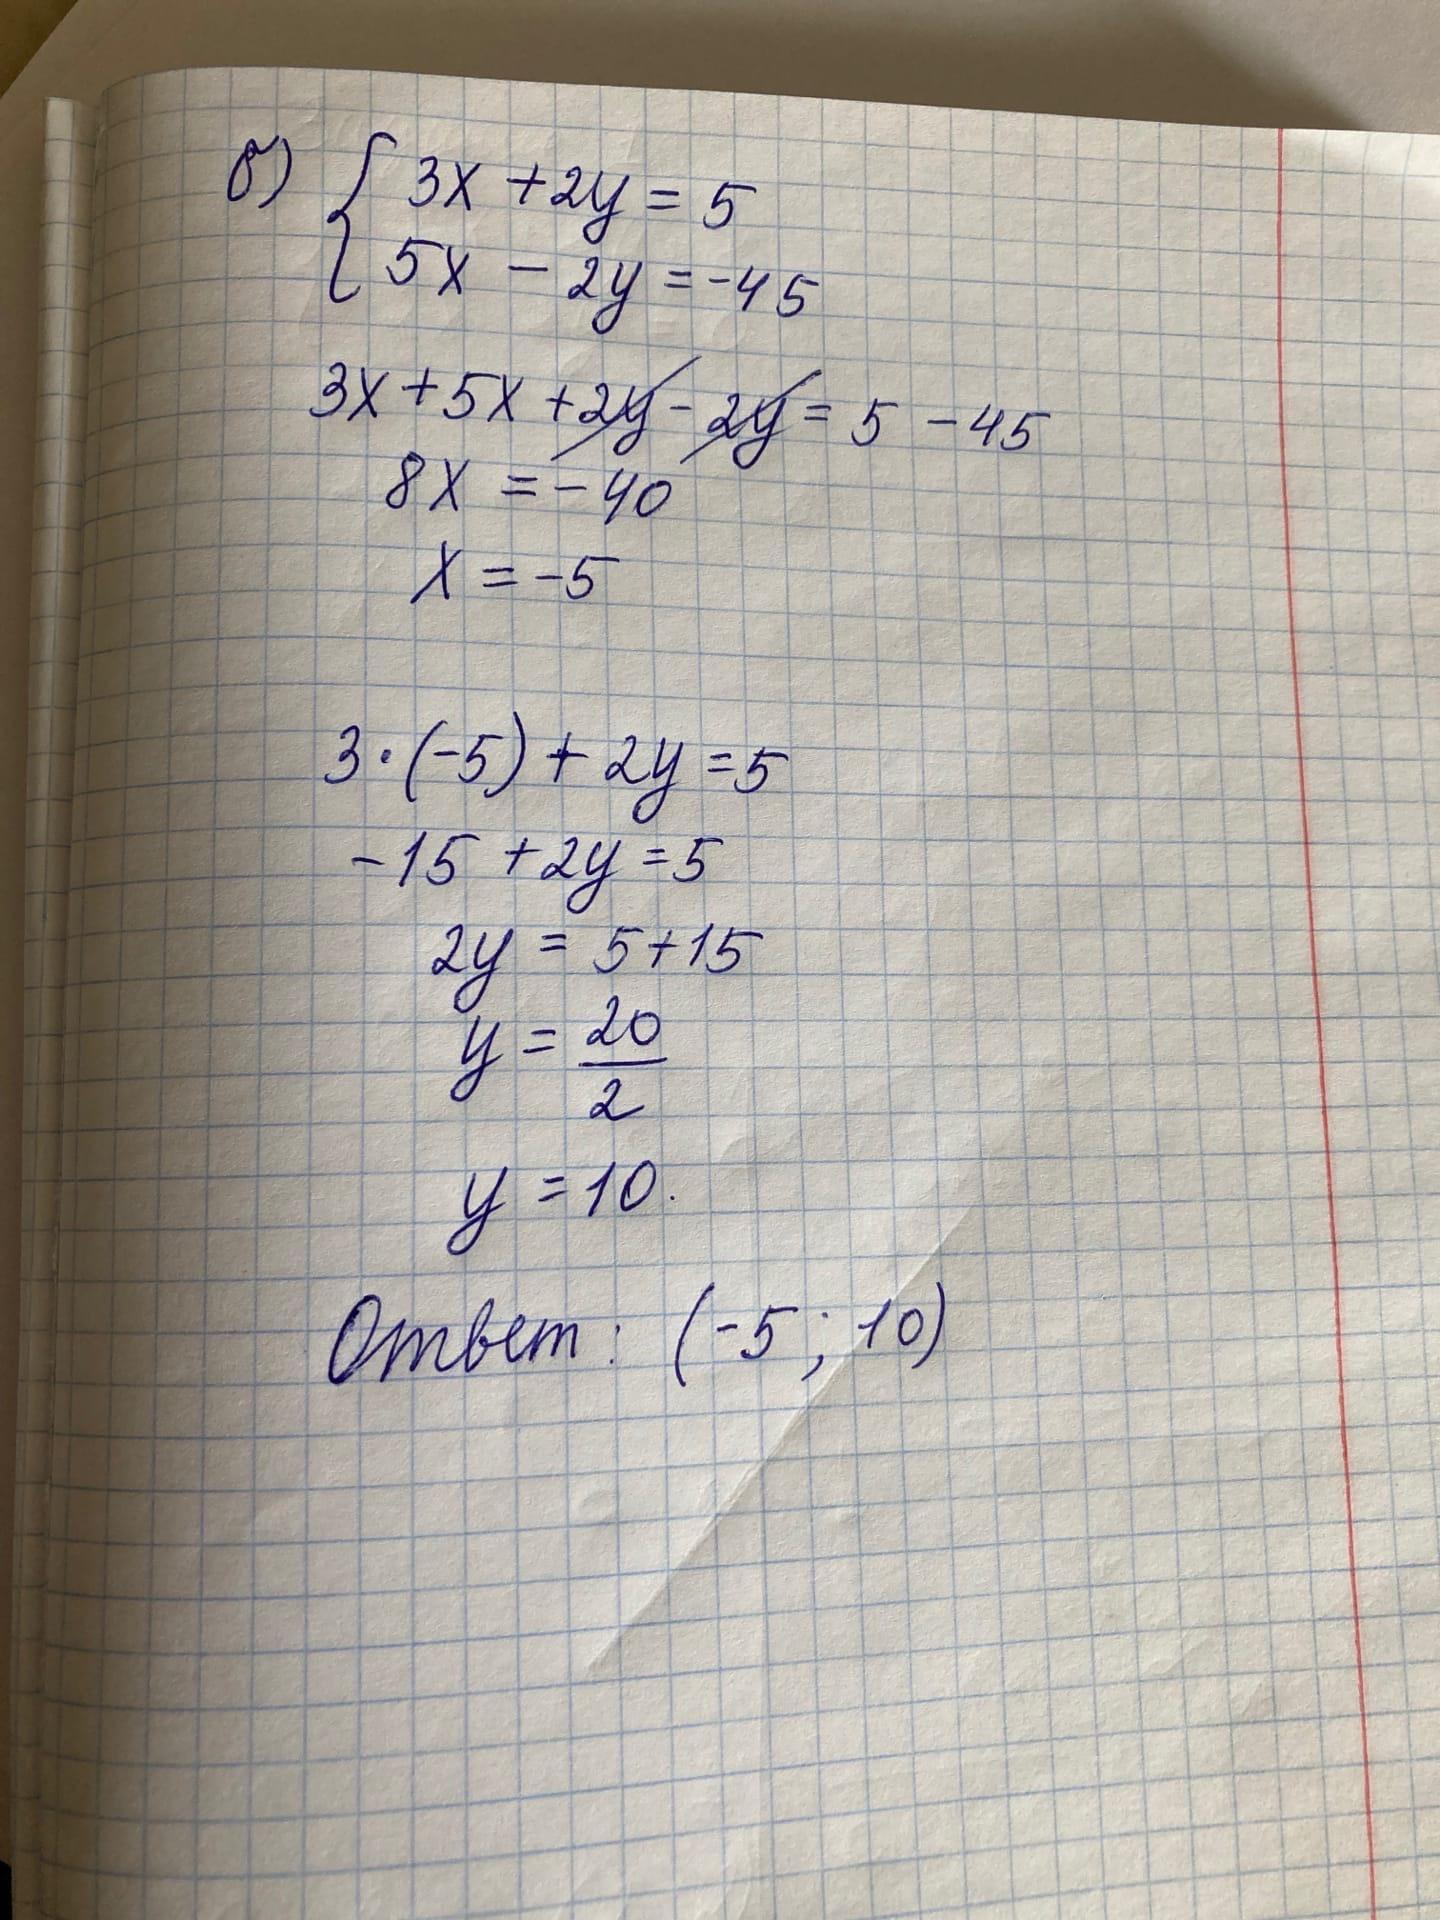 б) { 3x + 2y = 5
5x - 2y = -45
3x + 5x + 2y - 2y = 5 - 45
8x = -40
x = -5
3 · (-5) + 2y = 5
-15 + 2y = 5
2y = 5 + 15
y = 20/2
y = 10.
Ответ: (-5 ; 10)